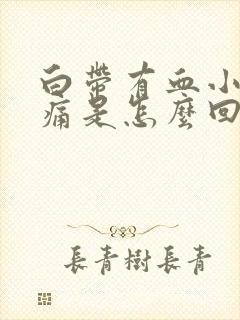 白帶有血小
痛是怎麼回
長青樹長青